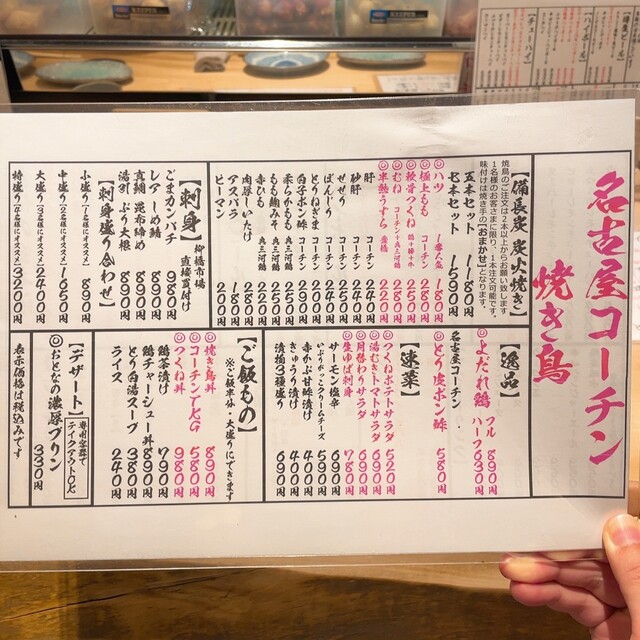 名古屋コーチン
焼き鳥
【備長炭 炭火焼き】
焼鳥のご注文は2本以上からお願い致します
1名様のお客さまに限り、1本注文可能です。
味付けは焼き手の【おまかせ】となります。
五本セット 1180円
七本セット 1590円
◎ハツ 1番人気 180円
◎極上もも コーチン 280円
◎軟骨つくね 鶏+豚+牛 250円
◎むね コーチン+奥三河鶏 220円
◎半熟うずら 豊橋 220円
肝 コーチン 240円
砂肝 コーチン 220円
せせり コーチン
ぼんじり コーチン
とりねぎま コーチン 290円
白子ポン酢 コーチン
柔らかもも 奥三河鶏
もも麹みそ 奥三河鶏
赤ひも 奥三河鶏
肉厚しいたけ
アスパラ 180円
ピーマン
【逸品】
◎よだれ鶏 フル 890円
ハーフ 630円
名古屋コーチン
◎とり皮ポン酢 580円
【速菜】
◎つくねポテトサラダ 520円
◎湯むきトマトサラダ 690円
◎月替わりサラダ 690円
◎生ゆば刺身 780円
サーモン塩辛 690円
いぶりがっこクリームチーズ 590円
赤かぶ甘酢漬け 400円
きゅうり漬け 400円
漬物3種盛り 690円
【刺身】 柳橋市場
直接買付け
ごまカンパチ 980円
レア しめ鯖 890円
真鯛 昆布締め 890円
湯引 ぶり大根 890円
【刺身盛り合わせ】
小盛り（1名様にオススメ） 890円
中盛り（2名様にオススメ） 1650円
大盛り（3名様にオススメ） 2400円
特盛り（4名様にオススメ） 3200円
【ご飯もの】
※ご飯半分・大盛りにできます
◎焼き鳥丼 890円
◎コーチンTKG 580円
◎つくね丼 980円
鶏茶漬け 790円
鶏チャーシュー丼 890円
とり白湯スープ 380円
ライス 240円
【デザート】
専用容器で
テイクアウトOK
◎おとなの濃厚プリン 330円
表示価格は税込みです